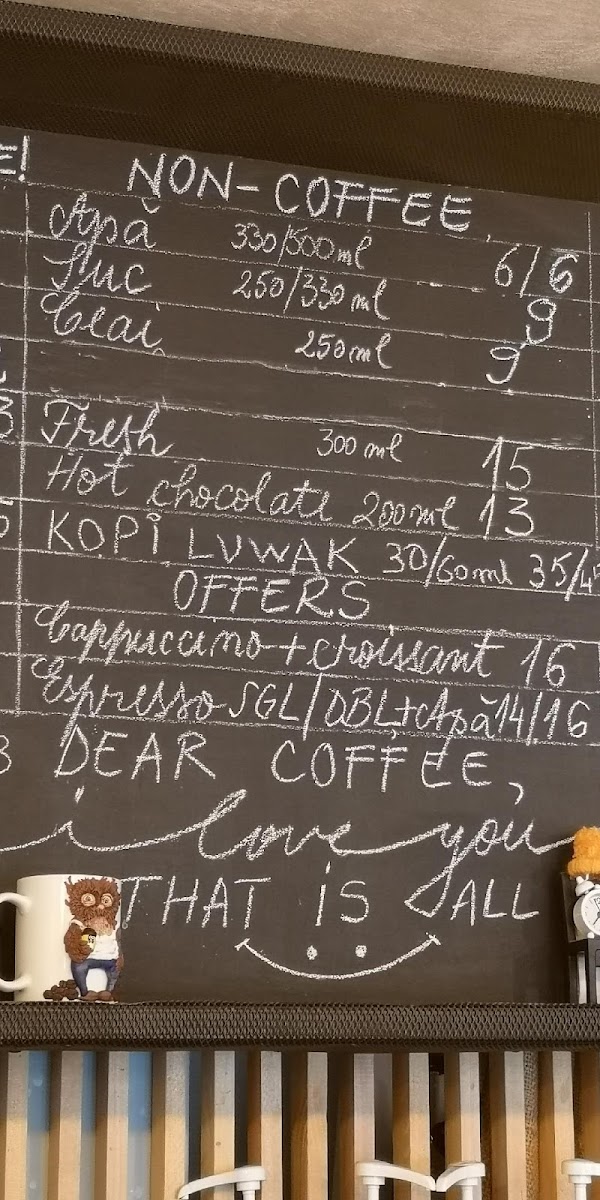 NON-COFFEE
Apă 330/500 ml 6/6
Suc 250/330 ml 9
Ceai 250 ml 9
Fresh 300 ml 15
Hot chocolate 200 ml 13
KOPI LUWAK 30/60 ml 35/4
OFFERS
Cappuccino + croissant 16
Espresso SGL/DBL + Apă 14/16
DEAR COFFEE,
i love you
THAT IS ALL